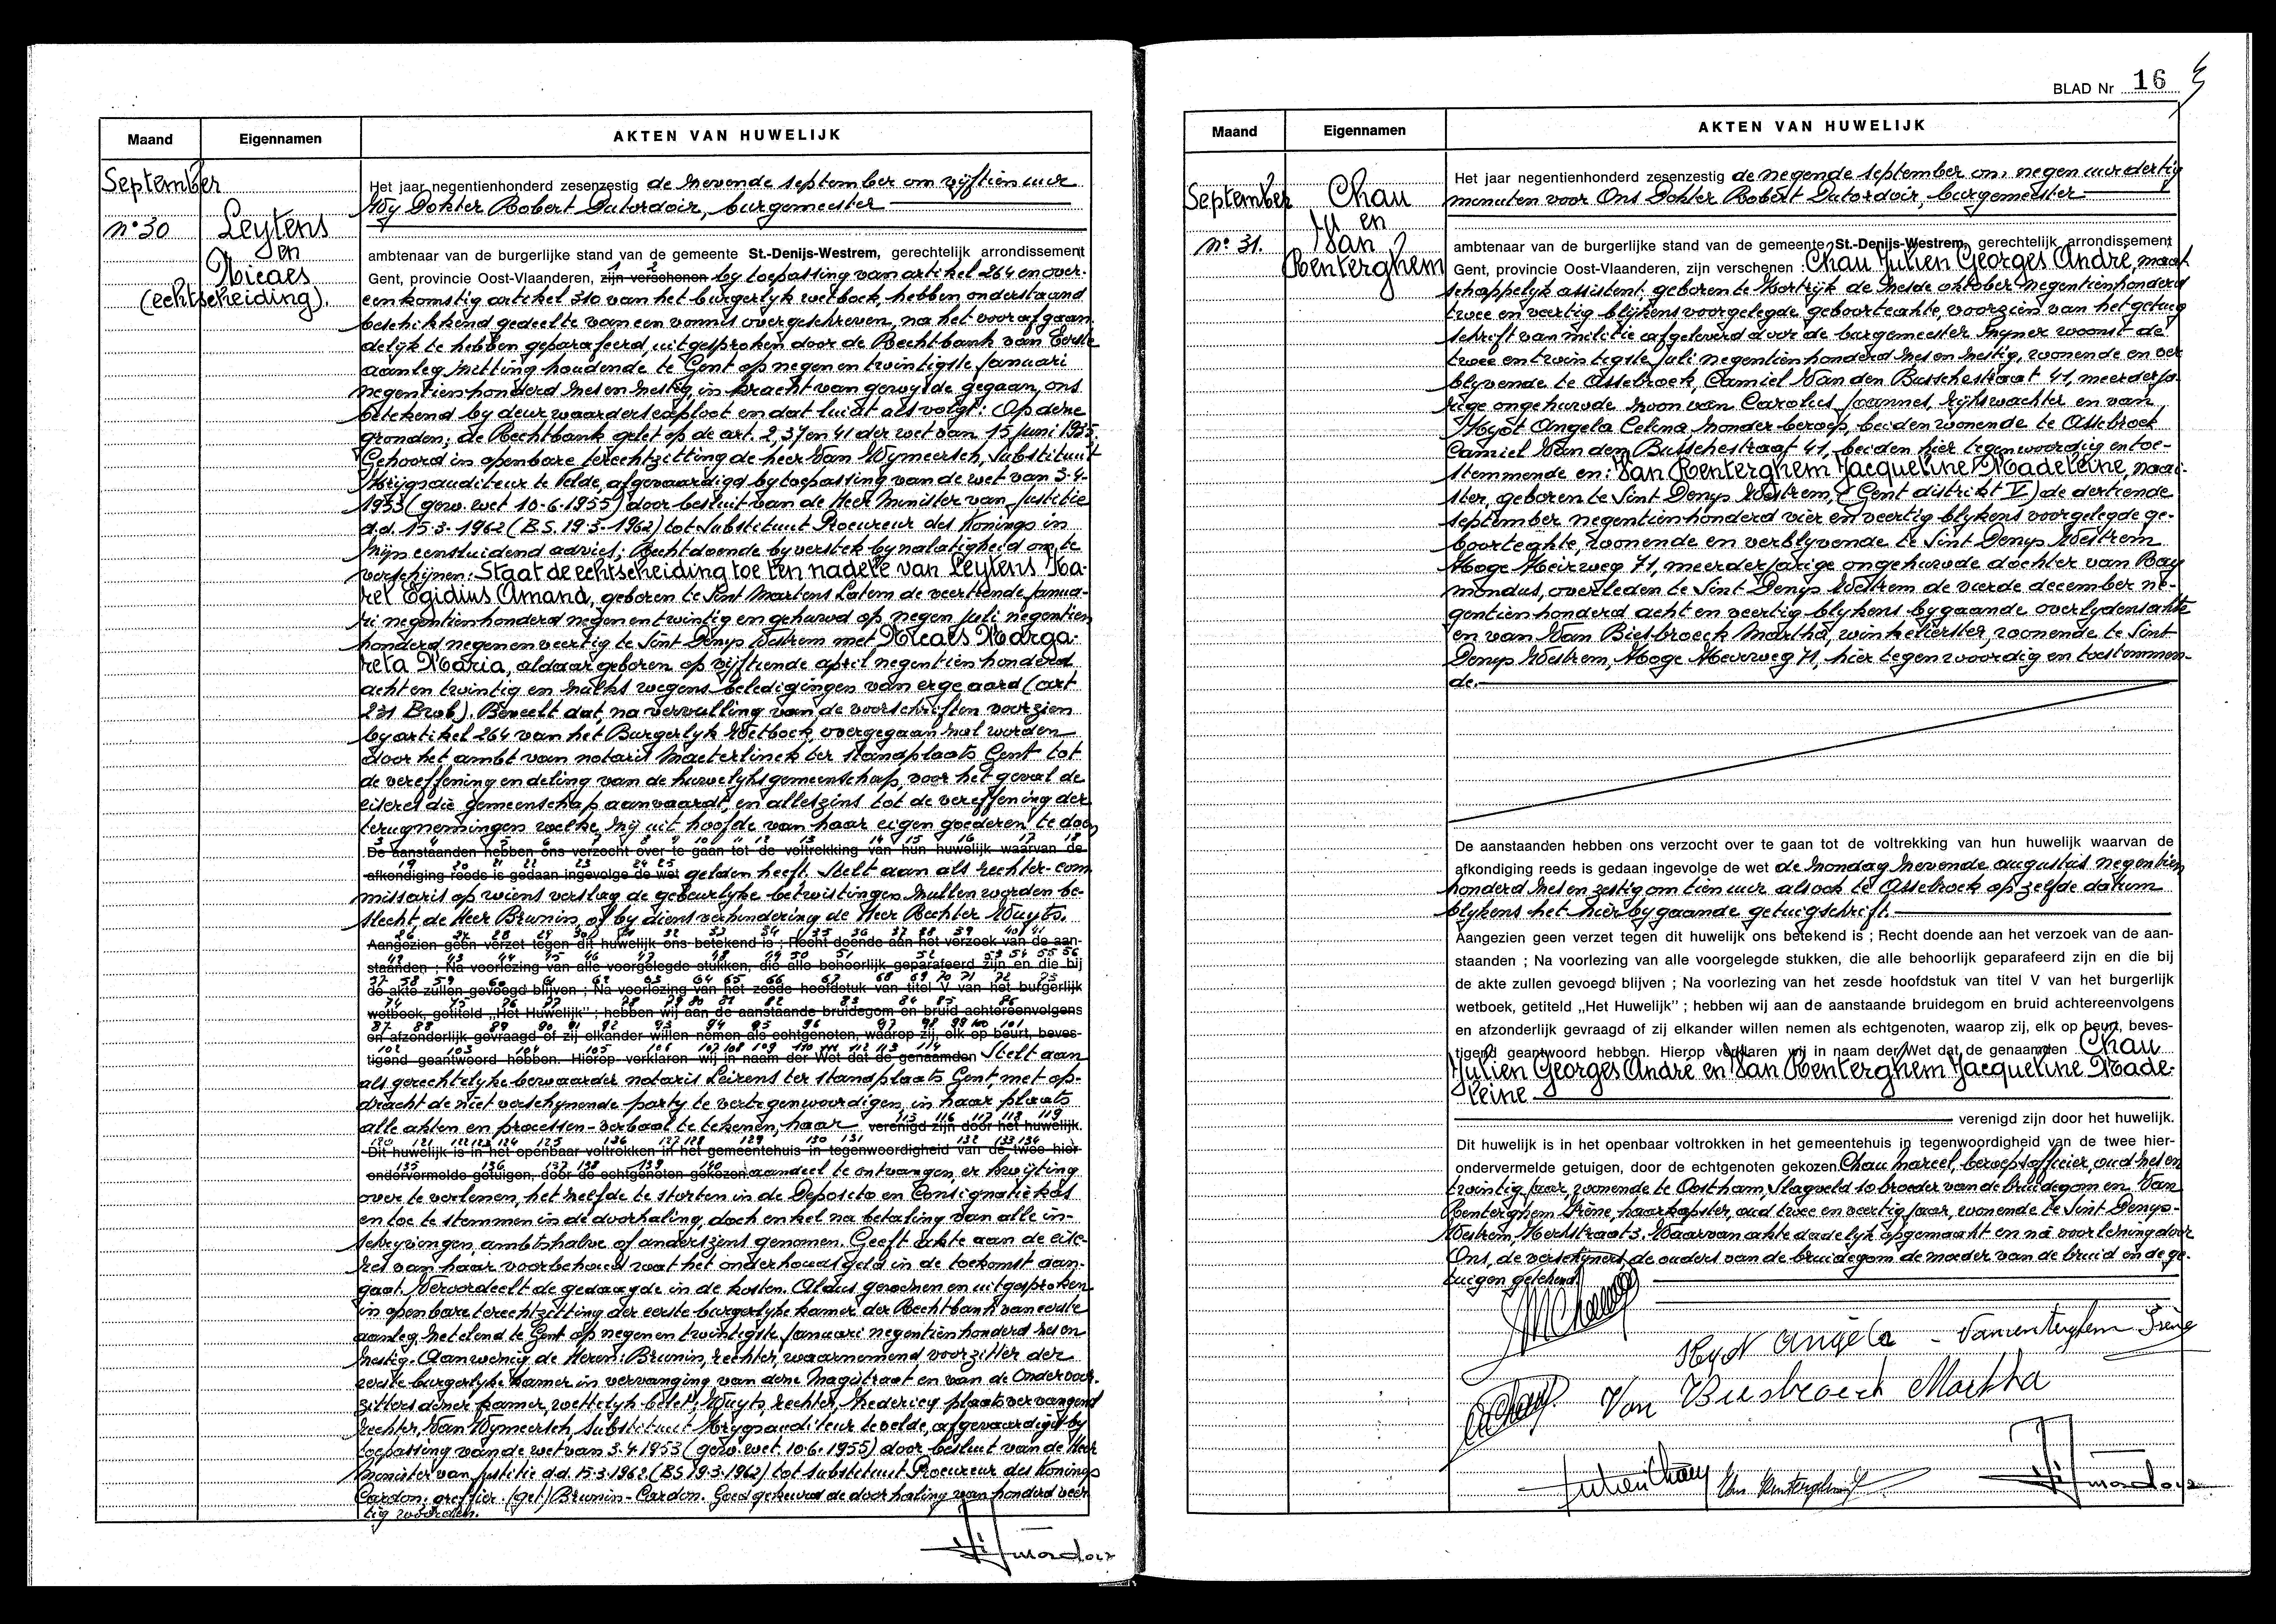 Maand
Eigennamen
AKTEN VAN HUWELIJK
September
n° 30
Leytens
en
Nicaes
(echtscheiding).
Het jaar negentienhonderd zesenzestig de zevende september om vijftien uur
Wy Dokter Robert Dutordoir, burgemeester
ambtenaar van de burgerlijke stand van de gemeente St.-Denijs-Westrem, gerechtelijk arrondissement
Gent, provincie Oost-Vlaanderen, zijn verschenen by toepassing van artikel 264 en over-
eenkomstig artikel 310 van het burgerlyk wetboek, hebben onderstaand
beschikkend gedeelte van een vonnis overgeschreven, na het voorafgaan-
delijk te hebben geparafeerd, uitgesproken door de Rechtbank van Eerste
aanleg zitting houdende te Gent op negen en twintigste Januari
negentienhonderd zes en zestig, in kracht van gewijsde gegaan, ons
betekend by deurwaardersexploot en dat luidt als volgt: Op deze
gronden; de Rechtbank gelet op de art. 2, 37 en 41 der wet van 15 juni 1935.
Gehoord in openbare terechtzitting de heer Van Wymeersch, Substituut
Krijgsauditeur te Velde, afgevaardigd by toepassing van de wet van 3-4-
1953 (gew. wet 10-6-1955) door besluit van de Heer Minister van Justitie
d.d. 15-3-1962 (B.S. 19-3-1962) tot substituut Procureur des Konings in
zijn eensluidend advies; Rechtdoende by verstek by nalatigheid om te
verschijnen: Staat de echtscheiding toe ten nadele van Leytens Ka-
rel Egidius Amand, geboren te Sint Martens Latem de veertiende janua-
ri negentienhonderd negen en twintig en gehuwd op negen juli negentien
honderd negenenveertig te Sint Denys Westrem met Nicaes Marga-
reta Maria, aldaar geboren op vijftiende april negentienhonderd
acht en twintig en zulks wegens beledigingen van erge aard (art
231 Brwb). Beveelt dat, na vervulling van de voorschriften voorzien
by artikel 264 van het Burgerlyk Wetboek, overgegaan zal worden
door het ambt van notaris Maeterlinck ter standplaats Gent tot
de vereffening en deling van de huwelyksgemeenschap, voor het geval de
eiseres die gemeenschap aanvaardt, en alleszins tot de vereffening der
terugnemingen welke zij uit hoofde van haar eigen goederen te doen
3 4 5 6 7 8 9 10 11 12 13 14 15 16 17 18
De aanstaanden hebben ons verzocht over te gaan tot de voltrekking van hun huwelijk waarvan de
19 20 21 22 23 24 25
afkondiging reeds is gedaan ingevolge de wet gelden heeft. Stelt aan als rechter-com
missaris op wiens verslag de gebeurlyke betwistingen zullen worden be-
slecht, de Heer Brunin, of by diens verhindering de Heer Rechter Wuyts.
Aangezien geen verzet tegen dit huwelijk ons betekend is ; Recht doende aan het verzoek van de aan-
staanden ; Na voorlezing van alle voorgelegde stukken, die alle behoorlijk geparafeerd zijn en die bij
de akte zullen gevoegd blijven ; Na voorlezing van het zesde hoofdstuk van titel V van het burgerlijk
wetboek, getiteld „Het Huwelijk" ; hebben wij aan de aanstaande bruidegom en bruid achtereenvolgens
en afzonderlijk gevraagd of zij elkander willen nemen als echtgenoten, waarop zij, elk op beurt, beves-
tigend geantwoord hebben. Hierop verklaren wij in naam der Wet dat de genaamden Stelt aan
als gerechtelyke bewaarder notaris Leirens ter standplaats Gent, met op-
dracht de niet verschynende party te vertegenwoordigen, in haar plaats
alle akten en processen-verbaal te tekenen, haar verenigd zijn door het huwelijk.
Dit huwelijk is in het openbaar voltrokken in het gemeentehuis in tegenwoordigheid van de twee hier-
ondervermelde getuigen, door de echtgenoten gekozen aandeel te ontvangen, er kwijting
over te verlenen, het zelfde te storten in de Deposito en Consignatiekas
en toe te stemmen in de doorhaling, doch enkel na betaling van alle in-
schryvingen ambtshalve of anderszins genomen. Geeft akte aan de eise-
res van haar voorbehoud wat het onderhoudsgeld in de toekomst aan-
gaat. Veroordeelt de gedaagde in de kosten. Aldus gewezen en uitgesproken
in openbare terechtzitting der eerste burgerlyke kamer der Rechtbank van eerste
aanleg zetelend te Gent op negen en twintigste Januari negentienhonderd zes en
zestig. Aanwezig de Heren: Brunin, rechter, waarnemend voorzitter der
eerste burgerlyke kamer in vervanging van deze Magistraat en van de Ondervoor-
zitters dezer kamer, wettelyk belet; Wuyts, rechter, plaatsvervangend
rechter, Van Wymeersch, substituut Krygsauditeur te velde, afgevaardigd by
toepassing van de wet van 3.4.1953 (gew. wet. 10.6.1955) door besluit van de Heer
Minister van Justitie d.d. 15.3.1962 (BS 19.3.1962) tot substituut Procureur des Konings
Cardon, greffier. (get) Brunin-Cardon. Goedgekeurd de doorhaling van honderd veer
tig woorden.
BLAD Nr 16
Maand
Eigennamen
AKTEN VAN HUWELIJK
September
n° 31.
Chau
en
Van
Renterghem
Het jaar negentienhonderd zesenzestig de negende september om negen uur dertig
minuten voor Ons Dokter Robert Dutordoir, burgemeester
ambtenaar van de burgerlijke stand van de gemeente St.-Denijs-Westrem, gerechtelijk arrondissement
Gent, provincie Oost-Vlaanderen, zijn verschenen : Chau Julien Georges André, maat
schappelyk assistent, geboren te Kortrijk de zesde oktober negentienhonderd
twee en veertig blijkens voorgelegde geboorteakte, voorzien van het getuig
schrift van militie afgeleverd door de burgemeester zijner woonst de
twee en twintigste juli negentienhonderd zes en zestig, wonende en ver
blyvende te Assebroek, Camiel Van den Busschestraat 41, meerderja-
rige ongehuwde zoon van Carolus Joannes, rijkswachter en van
Hyot Angela Celina zonder beroep, beiden wonende te Assebroek
Camiel Van den Busschestraat 41, beiden hier tegenwoordig en toe-
stemmende en: Van Renterghem Jacqueline Madeleine, naai-
ster, geboren te Sint Denys Westrem, (Gent distrikt V) de dertiende
september negentienhonderd vier en veertig blykens voorgelegde ge-
boorteakte, wonende en verblyvende te Sint Denys Westrem
Hoge Heirweg 71, meerderjarige ongehuwde dochter van Ray
mondus, overleden te Sint Denys Westrem de vierde december ne-
gentienhonderd acht en veertig blykens bygaande overlydensakte
en van Van Biesbroeck Martha, winkelierster, wonende te Sint
Denys Westrem, Hoge Heirweg 71, hier tegenwoordig en toestemmen-
de.
De aanstaanden hebben ons verzocht over te gaan tot de voltrekking van hun huwelijk waarvan de
afkondiging reeds is gedaan ingevolge de wet de zondag zevende augustus negentien
honderd zes en zestig om tien uur alsook te Assebroek op zelfde datum
blykens het hier bygaande getuigschrift.
Aangezien geen verzet tegen dit huwelijk ons betekend is ; Recht doende aan het verzoek van de aan-
staanden ; Na voorlezing van alle voorgelegde stukken, die alle behoorlijk geparafeerd zijn en die bij
de akte zullen gevoegd blijven ; Na voorlezing van het zesde hoofdstuk van titel V van het burgerlijk
wetboek, getiteld „Het Huwelijk" ; hebben wij aan de aanstaande bruidegom en bruid achtereenvolgens
en afzonderlijk gevraagd of zij elkander willen nemen als echtgenoten, waarop zij, elk op beurt, beves-
tigend geantwoord hebben. Hierop verklaren wij in naam der Wet dat de genaamden Chau
Julien Georges André en Van Renterghem Jacqueline Made-
leine
verenigd zijn door het huwelijk.
Dit huwelijk is in het openbaar voltrokken in het gemeentehuis in tegenwoordigheid van de twee hier-
ondervermelde getuigen, door de echtgenoten gekozen. Chau Marcel, beroepsofficier, oud zes en
twintig jaar, wonende te Oostham, Slagveld 10 broeder van de bruidegom en Van
Renterghem Irène, haarkapster, oud twee en veertig jaar, wonende te Sint Denys-
Westrem, Kerkstraat 3. Waarvan akte dadelyk opgemaakt en na voorlezing door
Ons, de verschyners, de ouders van de bruidegom de moeder van de bruid en de ge-
tuigen getekend.
Hyot Angèla - Vanrenterghem Irène
Van Biesbroeck Martha
Julien Chau